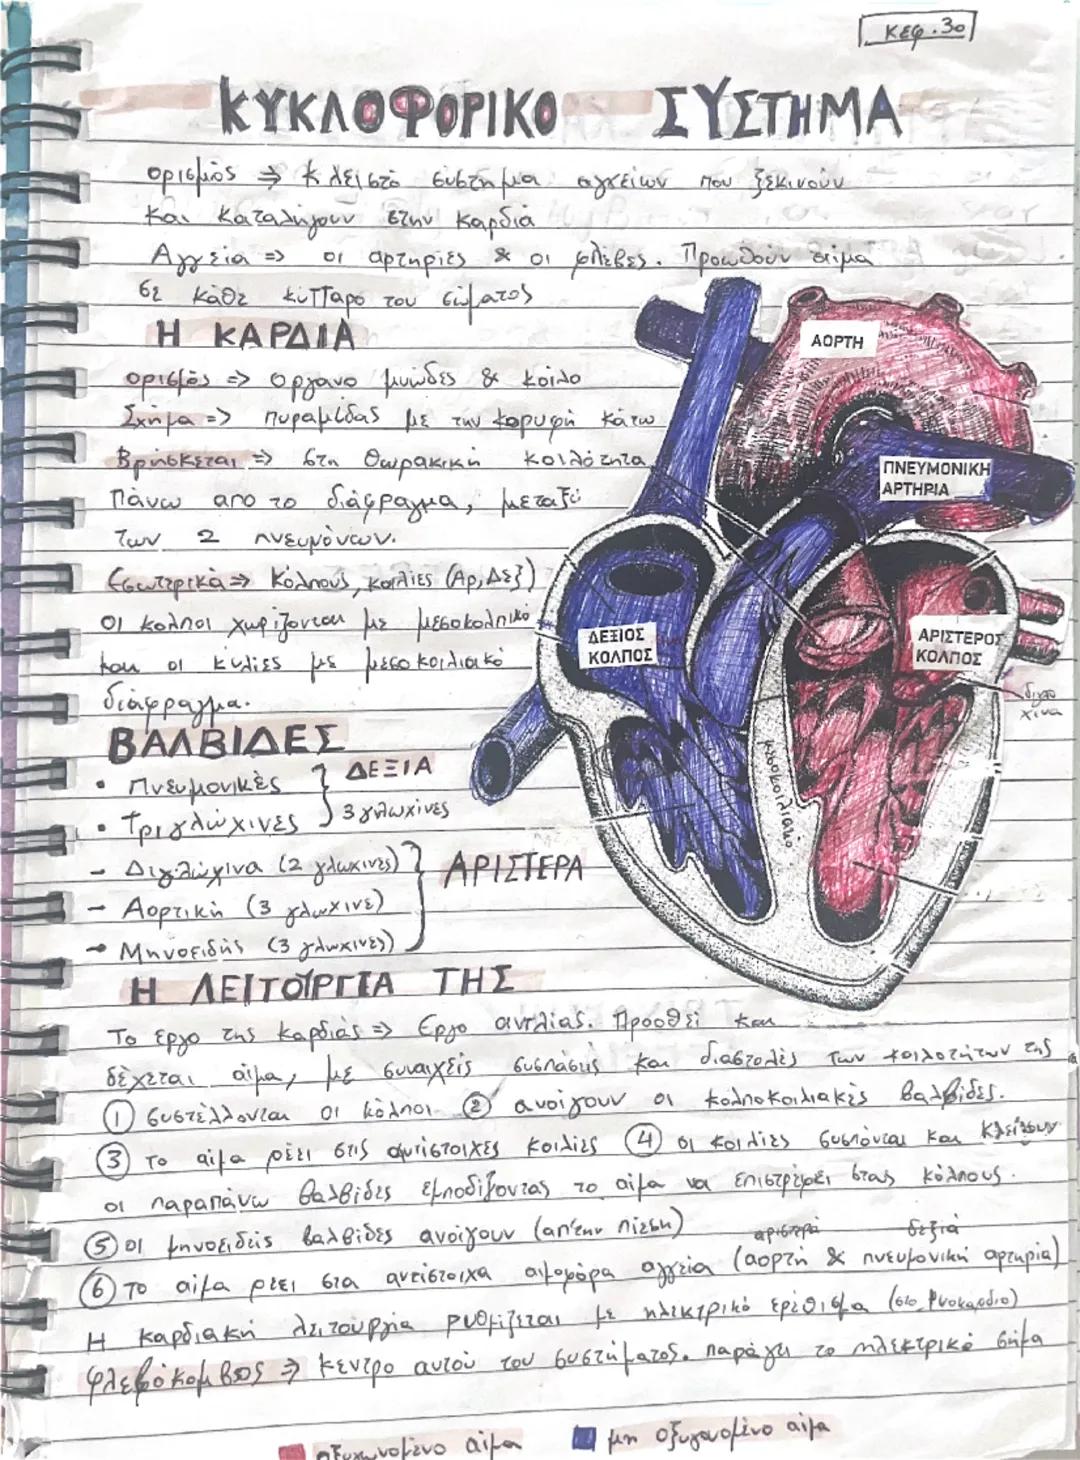 Κεφ. 3ο
ΚΥΚΛΟΦΟΡΙΚΟ ΣΥΣΤΗΜΑ
ορισμός => Κλειστό σύστημα αγγείων που ξεκινούν
και καταλήγουν στην καρδιά
Αγγεία => οι αρτηρίες & οι φλέβες. Προωθούν αίμα
σε κάθε κύτταρο του σώματος
Η ΚΑΡΔΙΑ
ορισμός => οργανο μυώδες & κοίλο
Σχήμα => πυραμίδας με την κορυφή κάτω
Βρίσκεται => στη θωρακική κοιλότητα
Πάνω απο το διάφραγμα, μεταξύ
των 2 πνευμόνων.
Εσωτερικά => Κόλπους, κοιλίες (Αρ, Δεξ)
Οι κολποι χωρίζονται με μεσοκολπικό
και οι κυλίες με μεσοκοιλιακό
διάφραγμα.
ΒΑΛΒΙΔΕΣ
• Πνευμονικές
• Τριγλώχινες
ΔΕΞΙΑ
3 γλωχίνες
- Διγλώχινα (2 γλωχινες)
- Αορτική (3 γλωχινε)
- Μηνοειδής (3 γλωχινες)
ΑΡΙΣΤΕΡΑ
ΑΟΡΤΗ
ΠΝΕΥΜΟΝΙΚΗ
ΑΡΤΗΡΙΑ
ΔΕΞΙΟΣ
ΚΟΛΠΟΣ
ΑΡΙΣΤΕΡΟΣ
ΚΟΛΠΟΣ
διγλο
χινα
Η ΛΕΙΤΟΥΡΓΙΑ ΤΗΣ
Το έργο της καρδιάς => Εργο αντλίας. Προοθεί και
δέχεται αίμα, με συναχείς συσπάσεις και διαστολές των κοιλοτήτων της
① συστέλλονται οι κόλποι ② ανοίγουν οι κολποκοιλιακές βαλβίδες.
③ το αίμα ρέει στις αντίστοιχες κοιλίες ④ οι κοιλίες συσπόνται και κλείνουν
οι παραπάνω βαλβίδες εμποδίζοντας το αίμα να επιστρέψει στους κόλπους.
⑤ οι μηνοειδείς βαλβίδες ανοίγουν (απ'την πίεση)
αριστερά δεξιά
⑥ το αίμα ρέει στα αντίστοιχα αιμοφόρα αγγεία (αορτή & πνευμονική αρτηρία)
Η καρδιακή λειτουργία ρυθμίζεται με ηλεκτρικό ερέθισμα (στο μυοκαρδιο)
Φλεβόκομβος => κέντρο αυτού του συστήματος. παράγει το ηλεκτρικό σήμα
οξυγονομένο αίμα
μη οξυγονομένο αίμα